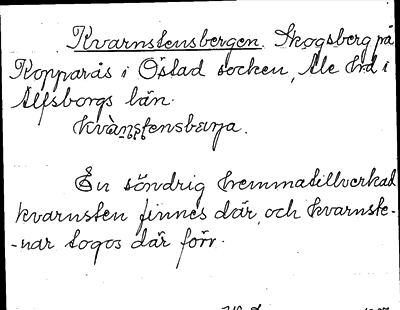 Kvarnstensbergen. Skogsberg på
Kopparås i Östad socken, Ale hd i
Älfsborgs län.
kvànstensbærja.
En söndrig hemmatillverkad
kvarnsten finnes där, och kvarnste-
-nar togos där förr.